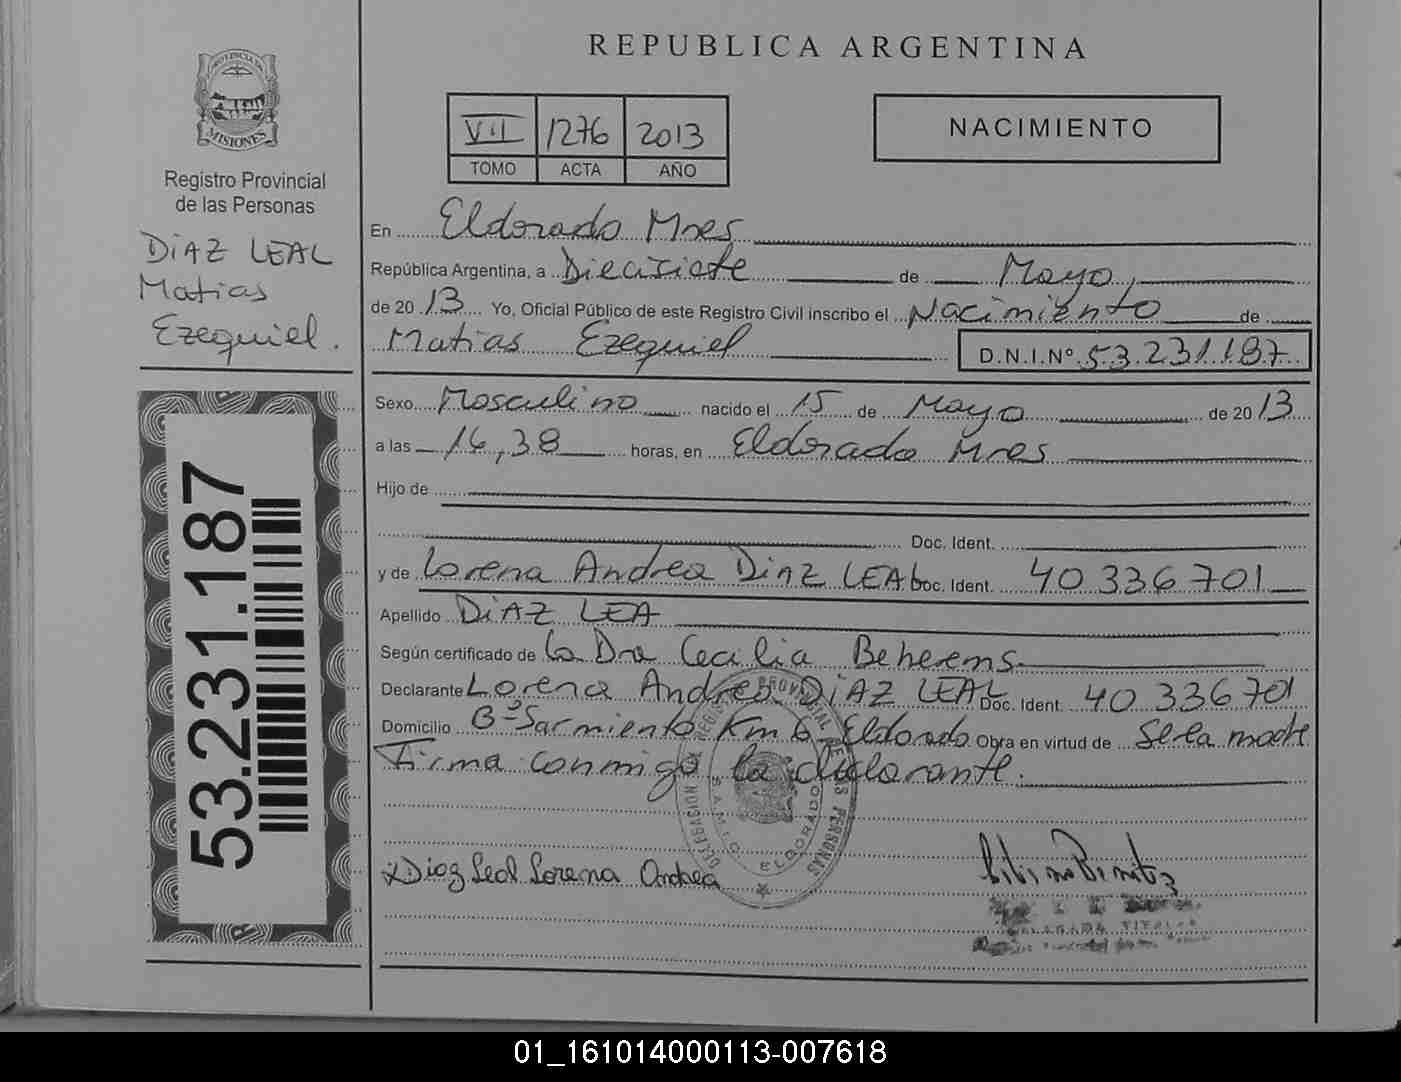 REPUBLICA ARGENTINA
PROVINCIA DE
MISIONES
Registro Provincial
de las Personas
DiAZ LEAL
Matias
Ezequiel.
53.231.187
VII 1276 2013
TOMO ACTA AÑO
NACIMIENTO
En Eldorado Mnes
República Argentina, a Diecisiete de Mayo,
de 20 13 Yo, Oficial Público de este Registro Civil inscribo el Nacimiento de
Matias Ezequiel D.N.I.Nº 53.231.187
Sexo Masculino nacido el 15 de Mayo de 20 13
a las 16,38 horas, en Eldorado Mnes
Hijo de
Doc. Ident.
y de Lorena Andrea DiAZ LEAL Doc. Ident. 40 336 701
Apellido DiAZ LEA
Según certificado de la Dra Cecilia Beherens
Declarante Lorena Andrea DiAZ LEAL Doc. Ident. 40 336 701
Domicilio Bº Sarmiento Km 6 Eldorado Obra en virtud de Se la madre
Firma conmigo la declarante.
DELEGACION REGISTRO PROVINCIAL DE LAS PERSONAS
SAMIC ELDORADO
x Diaz Leal Lorena Andrea
TITULAR
01_161014000113-007618